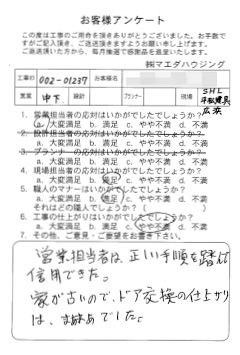 お客様アンケート
この度は工事のご用命を頂きありがとうございました。お手数で
すがご記入頂き、ご返送頂きますようお願い申し上げます。
ご返送頂いた方から、毎月抽選で感謝品を進呈いたします。
㈱マエダハウジング
工事ID 002-01239 お客様名
営業 中下 設計 プランナー 現場 SHL
広浜
1. 営業担当者の応対はいかがでしたでしょうか?
a. 大変満足 b. 満足 c. やや不満 d. 不満
2. 設計担当者の応対はいかがでしたでしょうか?
a. 大変満足 b. 満足 c. やや不満 d. 不満
3. プランナーの応対はいかがでしたでしょうか?
a. 大変満足 b. 満足 c. やや不満 d. 不満
4. 現場担当者の応対はいかがでしたでしょうか?
a. 大変満足 b. 満足 c. やや不満 d. 不満
5. 職人のマナーはいかがでしたでしょうか?
a. 大変満足 b. 満足 c. やや不満 d. 不満
それはどの職人でしょうか（ ）
6. 工事の仕上がりはいかがでしたでしょうか?
a. 大変満足 b. 満足 c. やや不満 d. 不満
7. その他、ご意見・ご要望をお書き下さい。
営業担当者は、正しい手順を踏んで
信用できた。
家が古いので、ドア交換の仕上がり
は、まあまあでした。